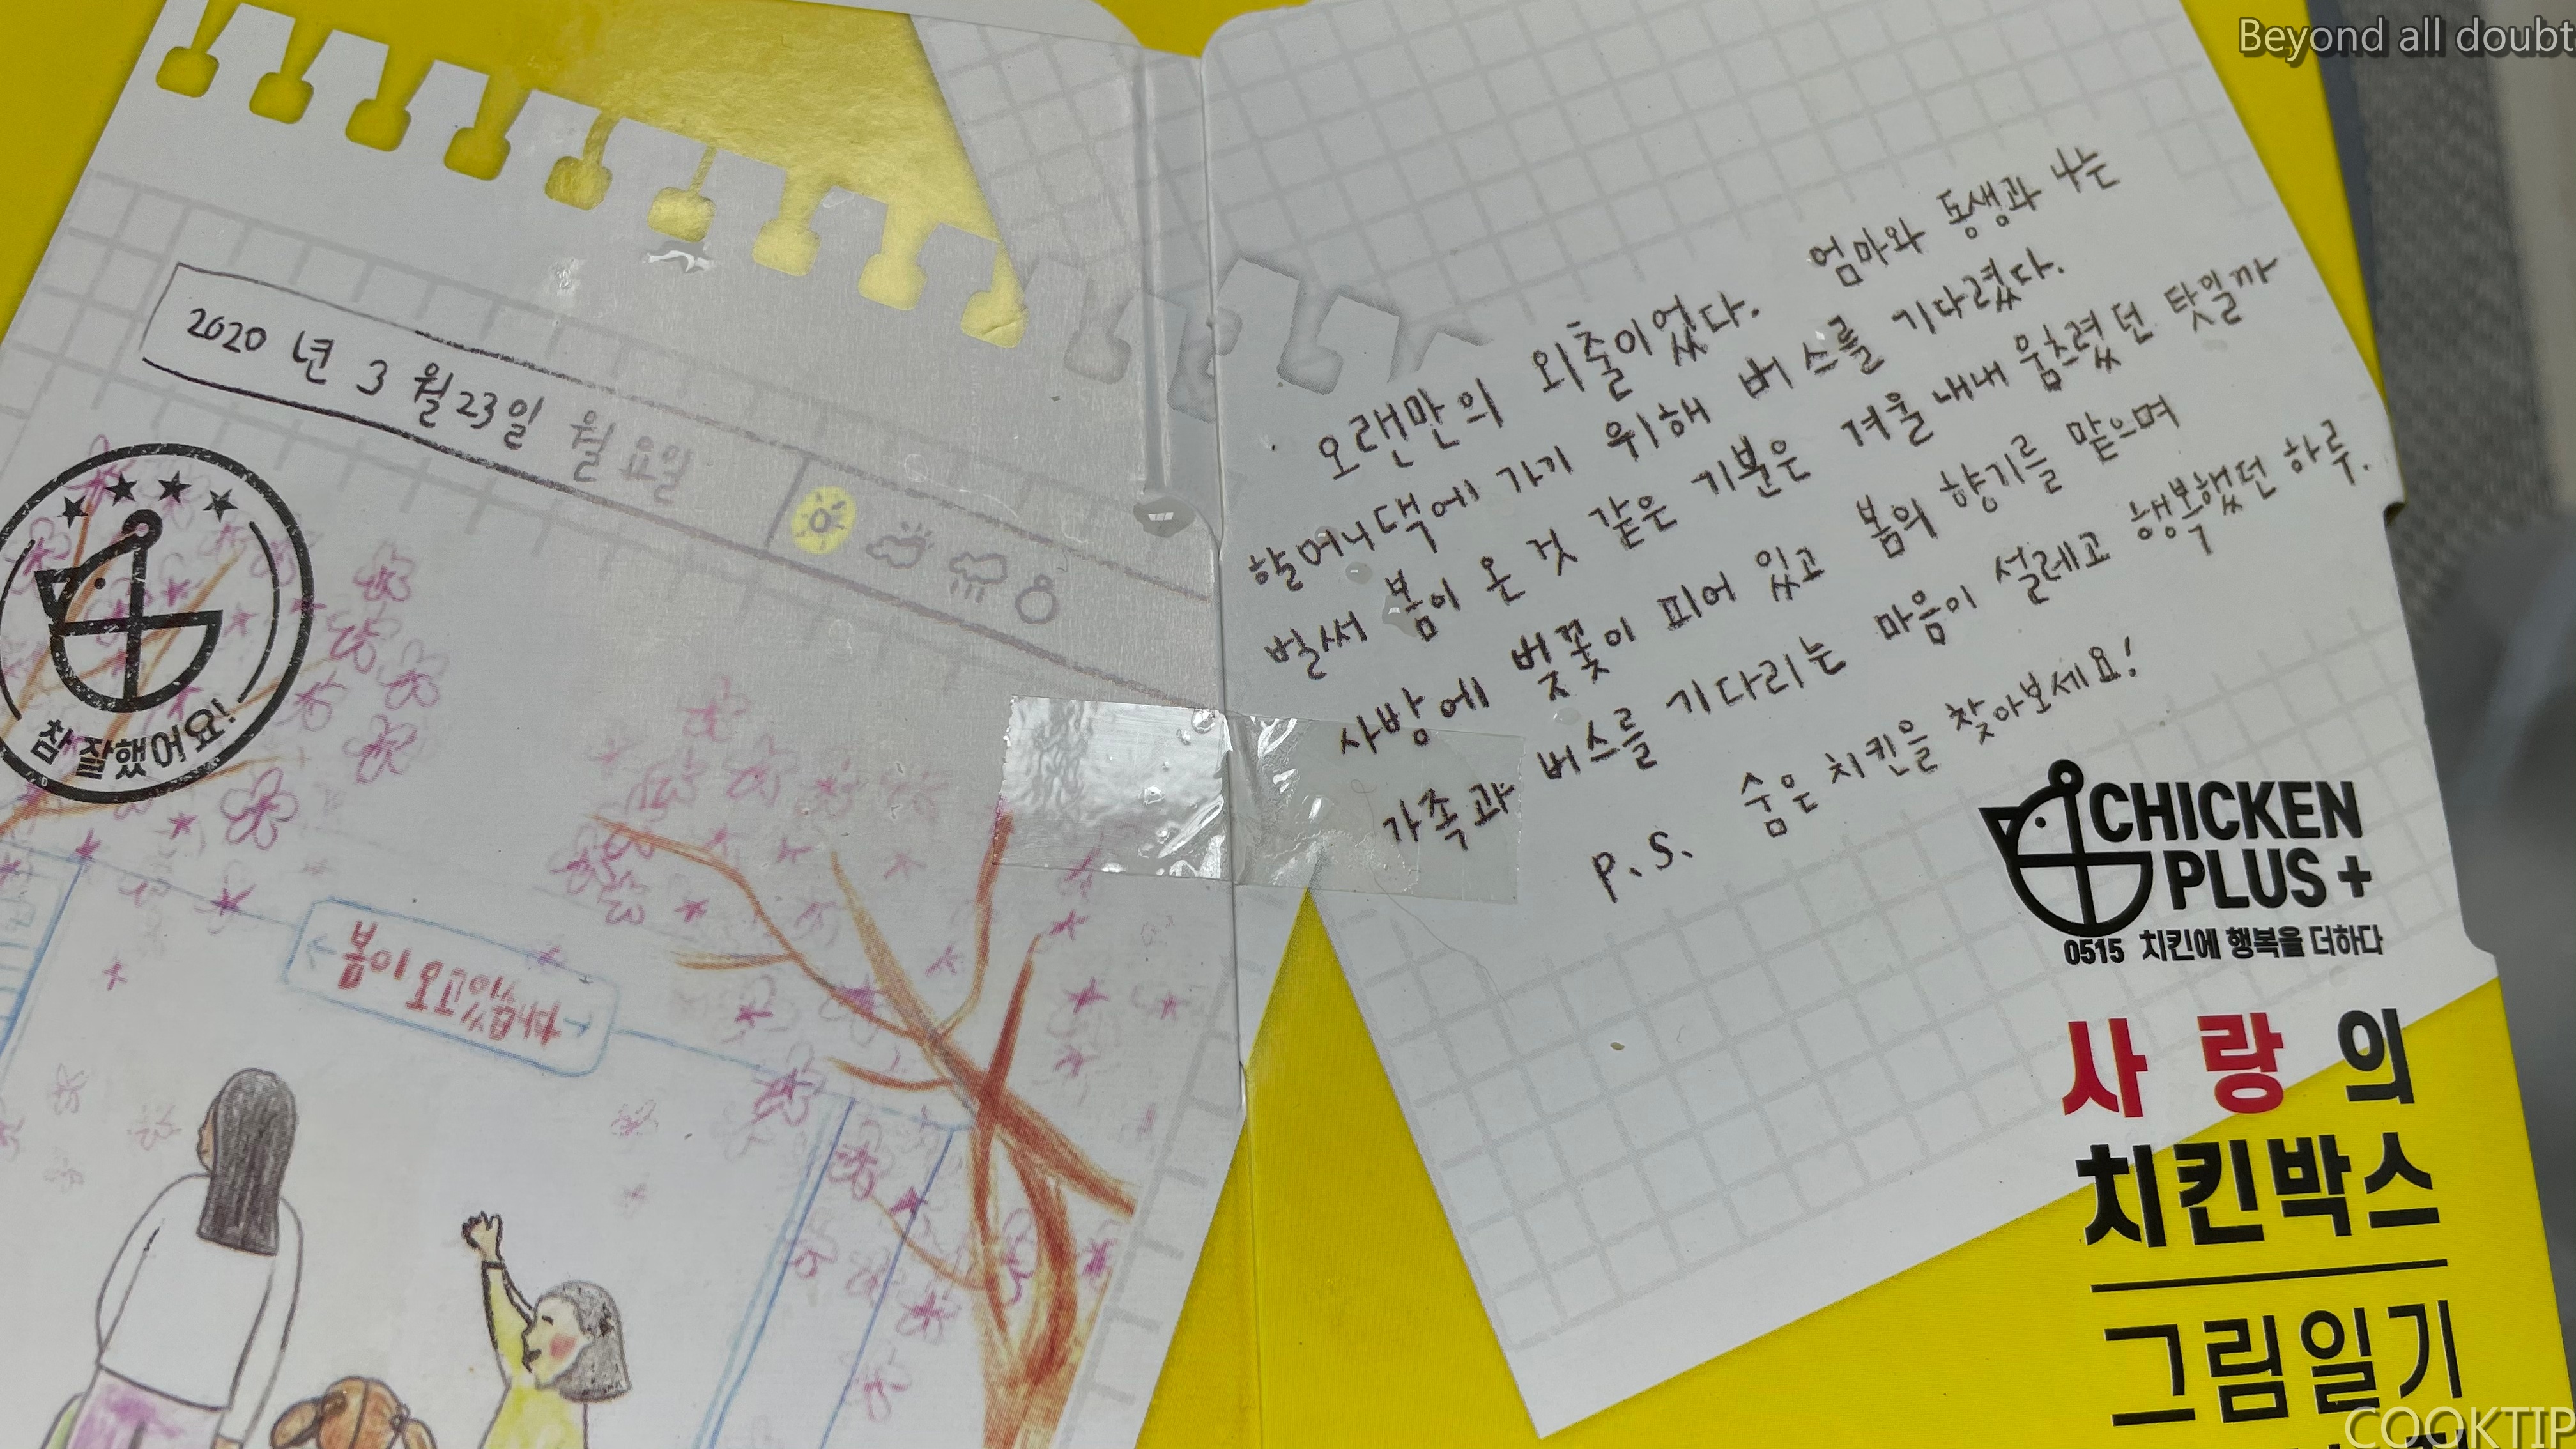 Beyond all doubt
2020 년 3 월 23일 월요일
참 잘했어요!
봄이 오고있는
오랜만의 외출이었다. 엄마와 동생과 나는
할머니댁에 가기 위해 버스를 기다렸다.
벌써 봄이 온 것 같은 기분은 겨울내내 움츠렸던 탓일까
사방에 벚꽃이 피어 있고 봄의 향기를 맡으며
가족과 버스를 기다리는 마음이 설레고 행복했던 하루.
P.S. 숨은 치킨을 찾아보세요!
CHICKEN
PLUS +
0515 치킨에 행복을 더하다
사랑의
치킨박스
그림일기
COOKTIP